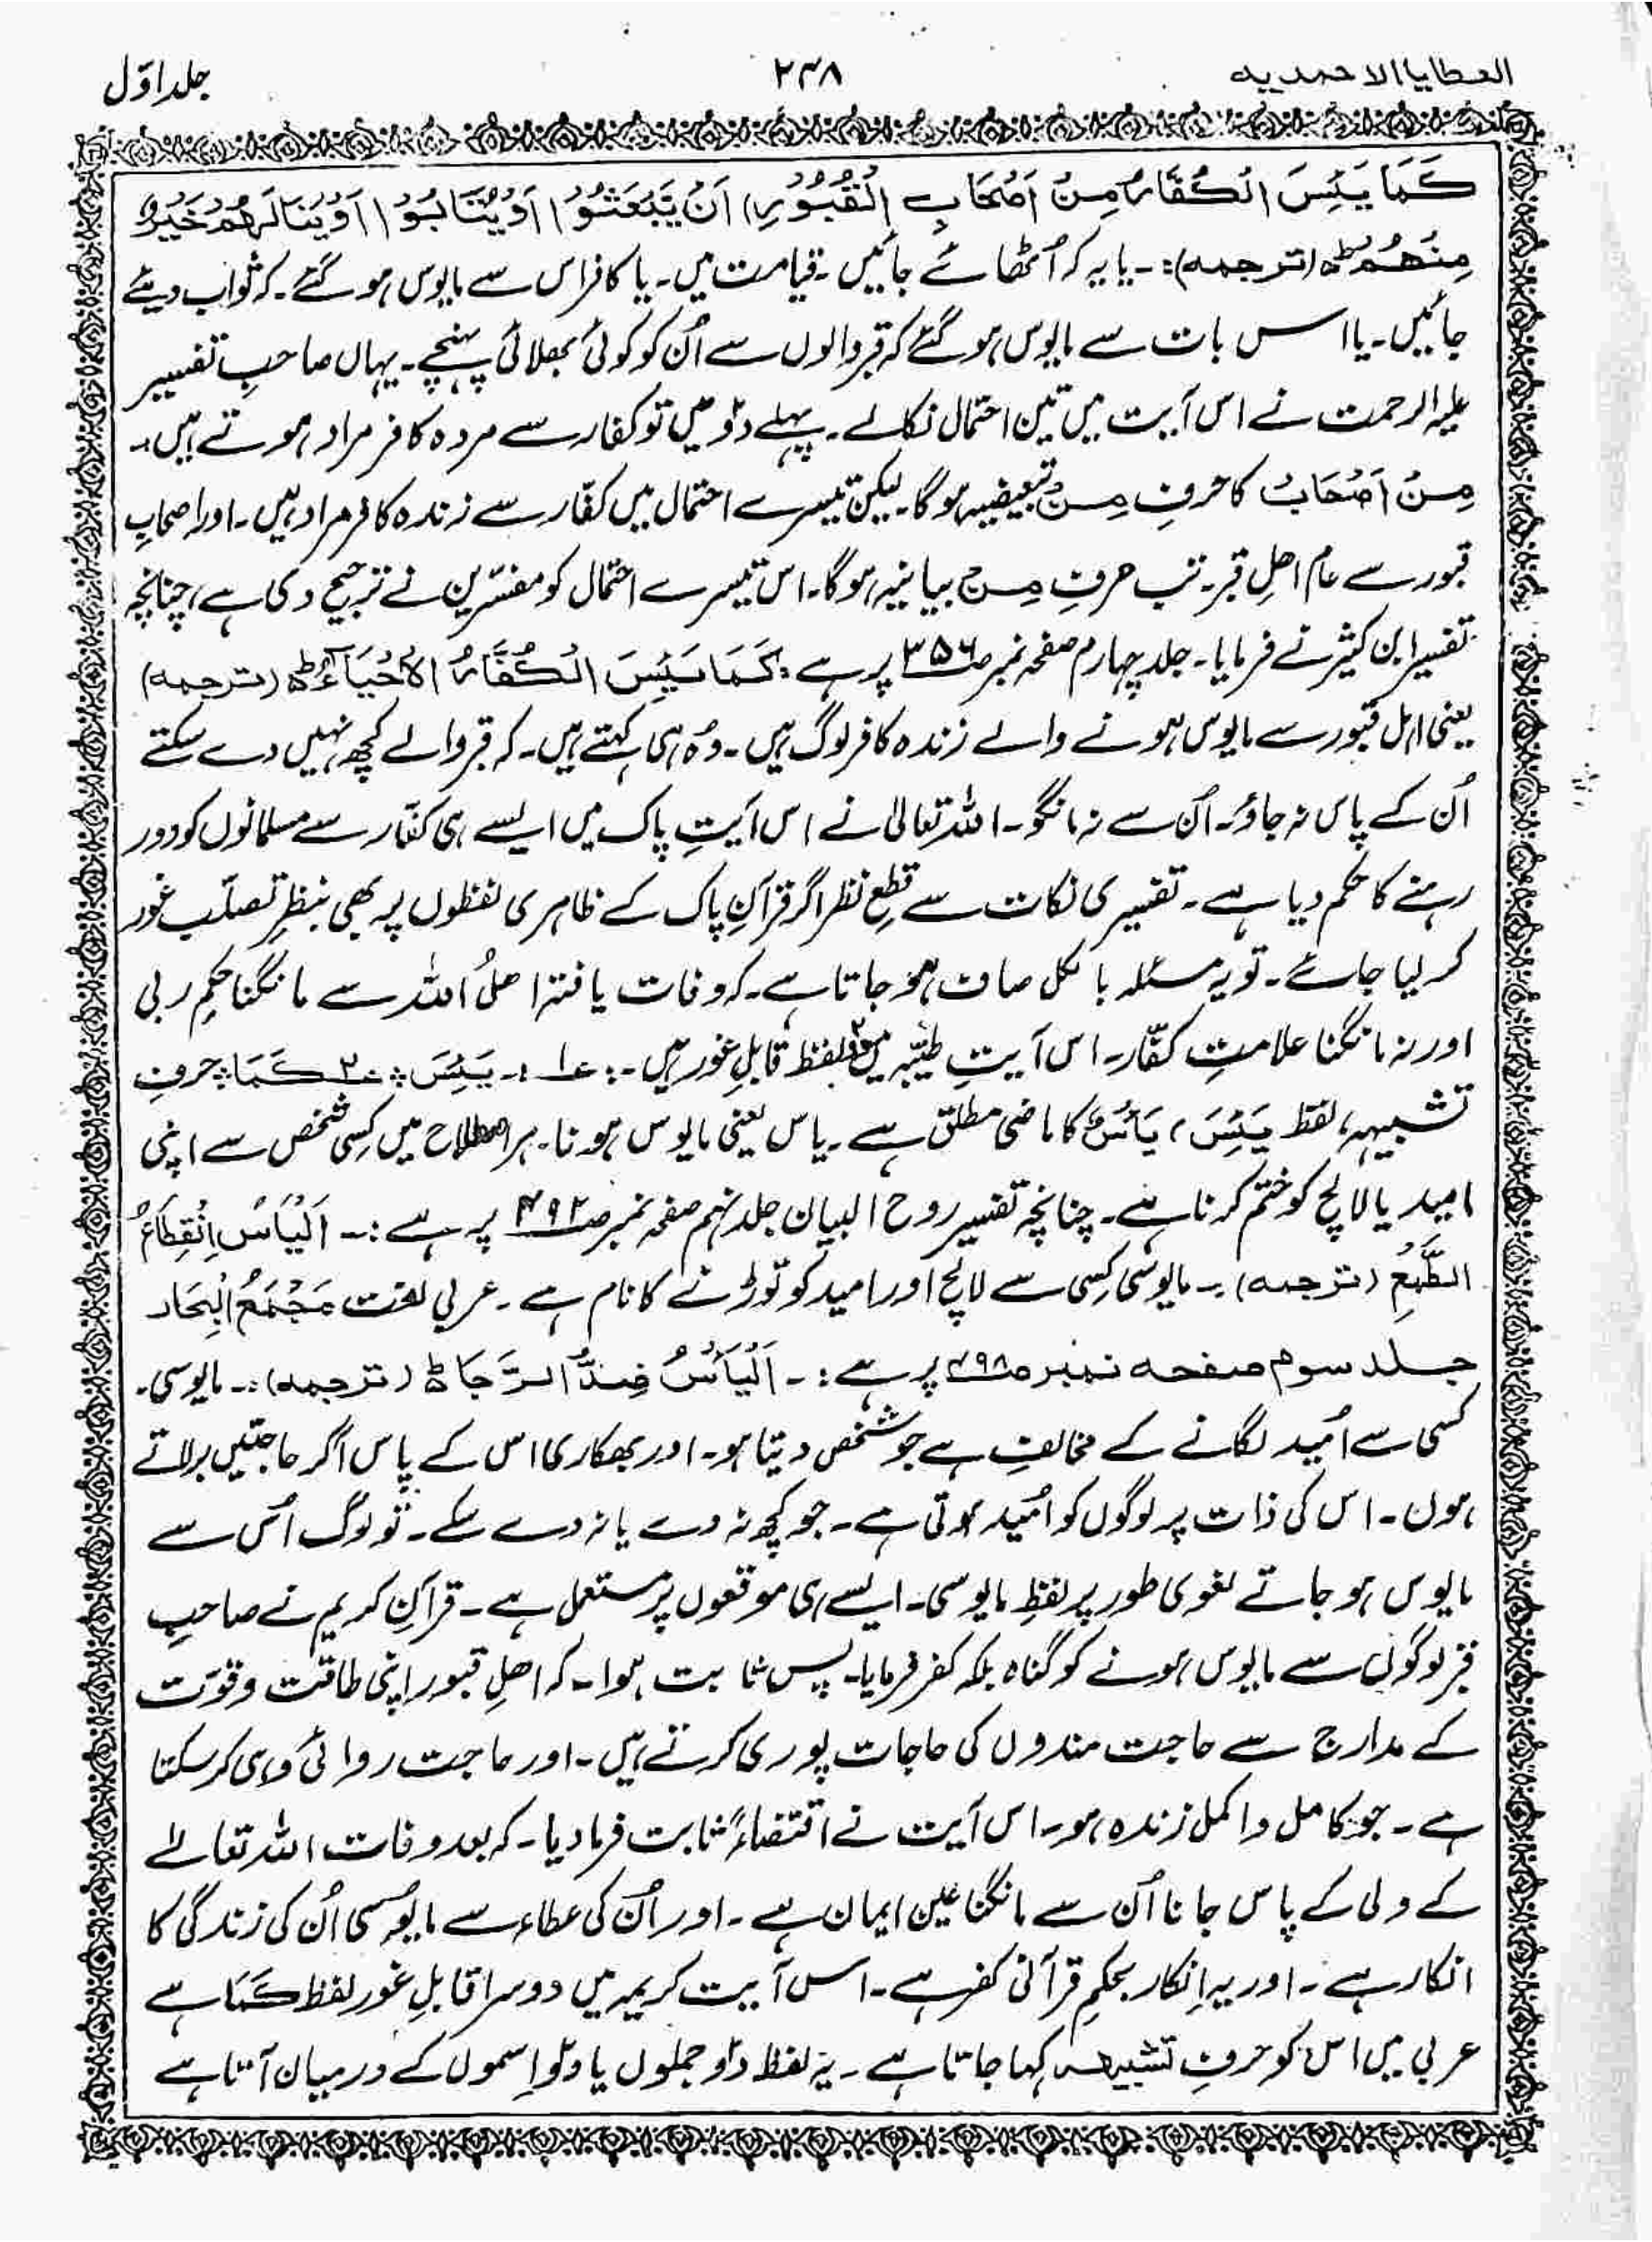 العطایا الاحمدیه ۲۳۸ جلد اوّل
كَمَا يَئِسَ الْكُفَّارُ مِنْ اَصْحَابِ الْقُبُوْرِ) اَنْ يَّبْعَثُوْا اَوْ يُثَابُوْا اَوْ يَنَالَهُمْ خَيْرٌ
مِنْهُمْ ط (ترجمہ):۔ یا یہ کہ اُٹھائے جائیں۔ قیامت میں۔ یا کافر اس سے مایوس ہو گئے۔ کہ ثواب دیئے
جائیں۔ یا اس بات سے مایوس ہو گئے کہ قبر والوں سے اُن کو کوئی بھلائی پہنچے۔ یہاں صاحبِ تفسیر
علیہ الرحمت نے اس آیت میں تین احتمال نکالے۔ پہلے دو میں تو کفار سے مردہ کافر مراد ہوتے ہیں۔
مِنْ اَصْحَابُ کا حرفِ مِنْ تبعیضیہ ہوگا۔ لیکن تیسرے احتمال میں کفّار سے زندہ کافر مراد ہیں۔ اور اصحابِ
قبور سے عام اھلِ قبر۔ تب حرفِ مِنْ بیانیہ ہوگا۔ اس تیسرے احتمال کو مفسّرین نے ترجیح دی ہے، چنانچہ
تفسیر ابن کثیر نے فرمایا۔ جلد چہارم صفحہ نمبر صـ۳۵۶ پر ہے: كَمَا يَئِسَ الْكُفَّارُ الْاَحْيَآءُ ط (ترجمہ)
یعنی اہل قبور سے مایوس ہونے والے زندہ کافر لوگ ہیں۔ وہ ہی کہتے ہیں۔ کہ قبر والے کچھ نہیں دے سکتے
اُن کے پاس نہ جاؤ۔ اُن سے نہ مانگو۔ اللہ تعالیٰ نے اس آیتِ پاک میں ایسے ہی کفّار سے مسلمانوں کو دور
رہنے کا حکم دیا ہے۔ تفسیری نکات سے قطعِ نظر اگر قرآنِ پاک کے ظاہری لفظوں پر بھی بنظرِ تصلّب غور
کر لیا جائے۔ تو یہ مسئلہ بالکل صاف ہو جاتا ہے۔ کہ وفات یافتہ اھلُ اللہ سے مانگنا حکمِ ربی
اور نہ مانگنا علامتِ کفّار۔ اس آیتِ طیّبہ میں دو لفظ قابلِ غور ہیں۔: ۱ :۔ یَئِسَ ؞ ۲ كَمَا ؞ حرفِ
تشبیہہ، لفظ یَئِسَ، یَأسٌ کا ماضی مطلق ہے۔ یاس یعنی مایوس ہونا۔ ہر اصطلاح میں کِسی شخص سے اپنی
امید یا لالچ کو ختم کرنا ہے۔ چنانچہ تفسیر روح البیان جلد نہم صفحہ نمبر صـ۴۹۲ پر ہے:۔ اَلْيَأسُ اِنْقِطَاعُ
الطَّمِعِ (ترجمہ)۔ مایوسی کِسی سے لالچ اور امید کو توڑنے کا نام ہے۔ عربی لغت مَجْمَعُ الْبِحَار
جلد سوم صفحہ نمبر صـ۴۹۸ پر ہے:۔ اَلْيَأْسُ ضِدُّ الرَّجَاۃ ط (ترجمہ)۔ مایوسی۔
کسی سے اُمید لگانے کے مخالف ہے جو شخص دیتا ہو۔ اور بھکاری اس کے پاس آکر حاجتیں برلاتے
ہوں۔ اس کی ذات پر لوگوں کو اُمید ہوتی ہے۔ جو کچھ نہ دے یا نہ دے سکے۔ تو لوگ اُس سے
مایوس ہو جاتے لغوی طور پر لفظِ مایوسی۔ ایسے ہی موقعوں پر مستعمل ہے۔ قرآنِ کریم نے صاحبِ
قبر لوگوں سے مایوس ہونے کو گناہ بلکہ کفر فرمایا۔ پس ثابت ہوا۔ کہ اھلِ قبور اپنی طاقت وقوّت
کے مدارج سے حاجت مندوں کی حاجات پوری کرتے ہیں۔ اور حاجت روائی وہی کرسکتا
ہے۔ جو کامل واکمل زندہ ہو۔ اس آیت نے اقتضاءً ثابت فرمادیا۔ کہ بعد وفات اللہ تعالےٰ
کے ولی کے پاس جانا اُن سے مانگنا عین ایمان ہے۔ اور اُن کی عطاء سے مایوسی اُن کی زندگی کا
انکار ہے۔ اور یہ اِنکار بحکمِ قرآنی کفر ہے۔ اس آیت کریمہ میں دوسرا قابلِ غور لفظ كَمَا ہے
عربی میں اس کو حرفِ تشبیهہ کہا جاتا ہے۔ یہ لفظ دو جملوں یا دو اِسموں کے درمیان آتا ہے